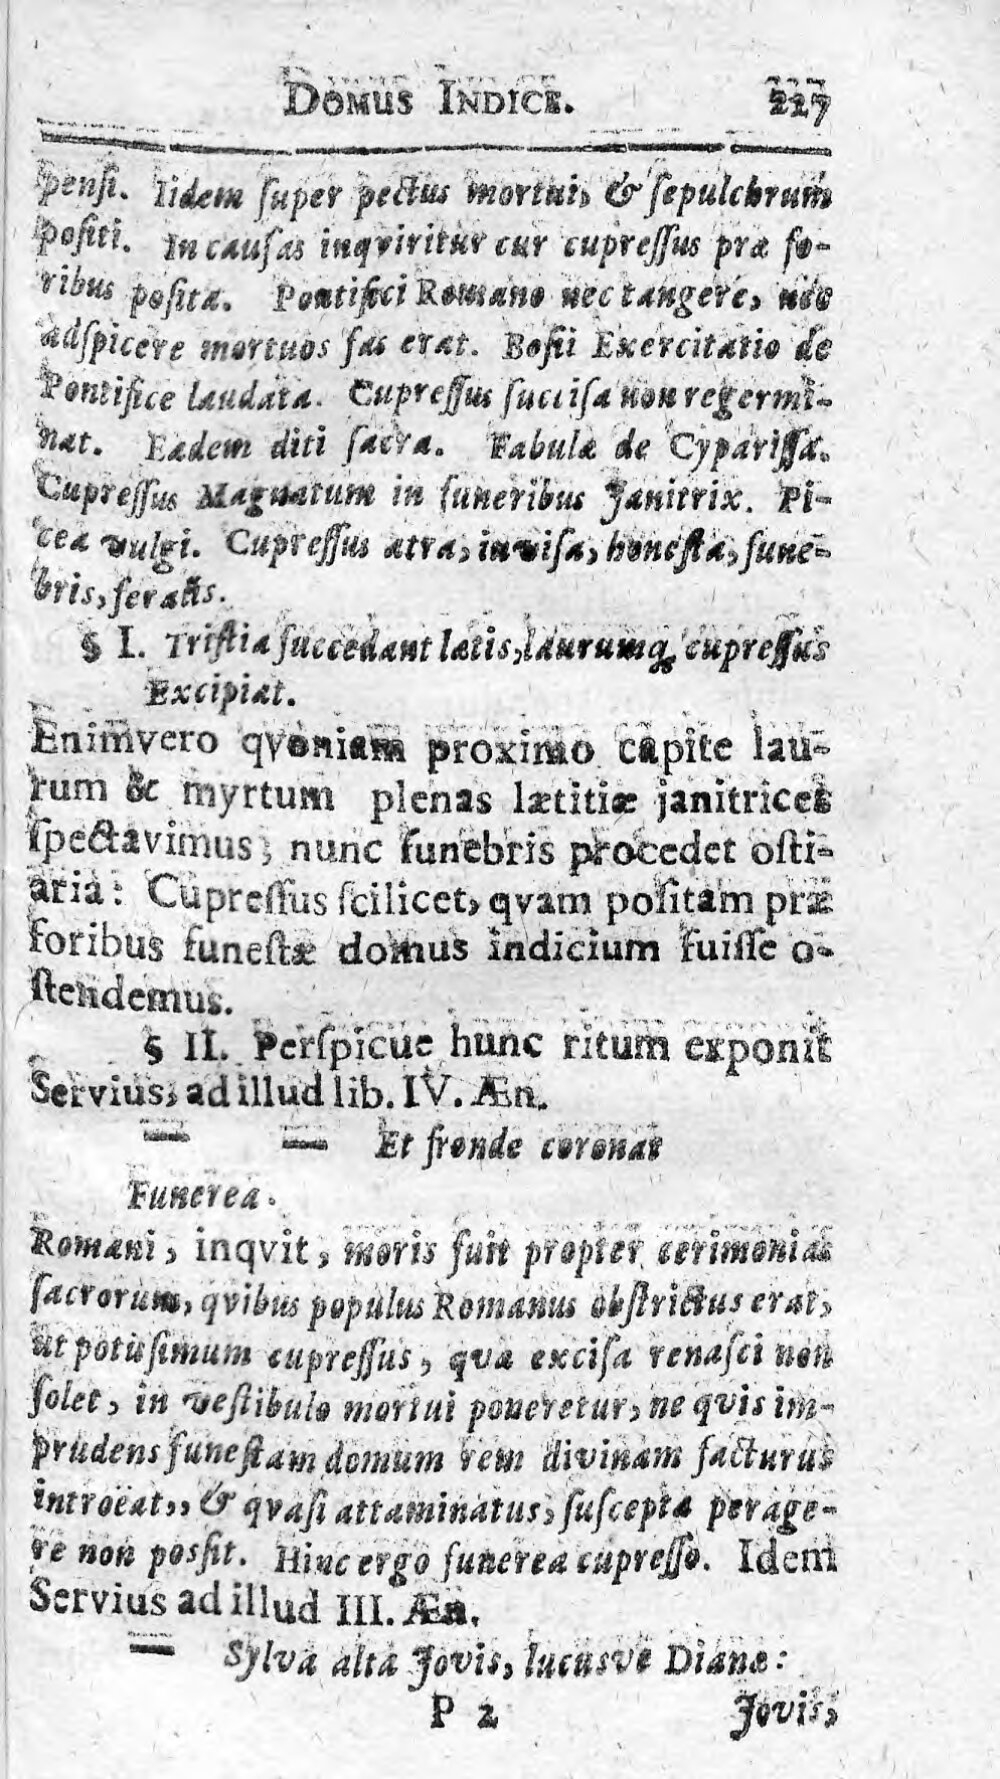 DOMUS INDICE. 227
pensi. Iidem ſuper pectus mortui, & ſepulchrum
positi. In cauſas inqviritur cur cupreſſus præ fo-
ribus posita. Pontifici Romano nec tangere, nec
adſpicere mortuos fas erat. Bosii Exercitatio de
Pontifice laudata. Cupreſſus ſucciſa non regermi-
nat. Eadem diti ſacra. Fabulæ de Cypariſſa.
Cupreſſus Magnatum in funeribus Janitrix. Pi-
cea vulgi. Cupreſſus atra, inviſa, honeſta, fune-
bris, feralis.
§ I. Triſtia ſuccedant lætis, laurumq; cupreſſus
Excipiat.
Enimvero qvoniam proximo capite lau-
rum & myrtum plenas lætitiæ janitrices
ſpectavimus; nunc funebris procedet oſti-
aria: Cupreſſus ſcilicet, qvam poſitam præ
foribus funeſtæ domus indicium fuiſſe o-
ſtendemus.
§ II. Perſpicue hunc ritum exponit
Servius, ad illud lib. IV. Æn.
— — Et fronde coronat
Funerea.
Romani, inqvit, moris fuit propter cerimonias
ſacrorum, qvibus populus Romanus obſtrictus erat,
ut potiſſimum cupreſſus, qva exciſa renaſci non
ſolet, in veſtibulo mortui poneretur, ne qvis im-
prudens funeſtam domum rem divinam facturus
introëat,, & qvaſi attaminatus, ſuſcepta perage-
re non posſit. Hinc ergo funerea cupreſſo. Idem
Servius ad illud III. Æn.
— Sylva alta Jovis, lucusve Dianæ:
P 2 Jovis,